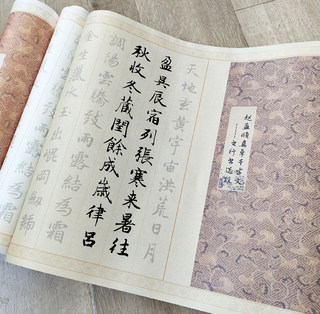 赵孟頫真草千字文
天地玄黄宇宙洪荒日月
盈昃辰宿列張寒来暑往
秋收冬藏閏餘成歲律呂
調陽雲騰致雨露結為霜
金生麗水玉出崐岡劍號